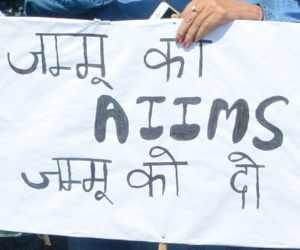 जम्मू का
AIIMS
जम्मू को दो